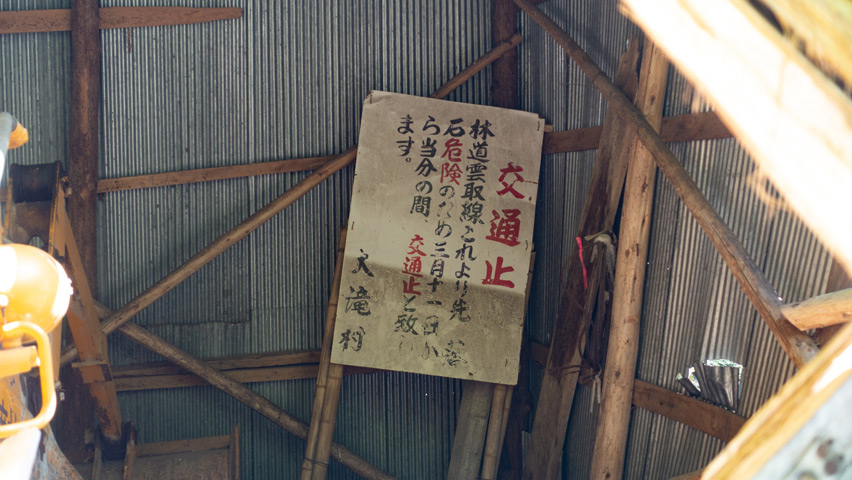 交通止
林道雲取線これより先落
石危険のため三月十一日か
ら当分の間、交通止と致し
ます。
大滝村